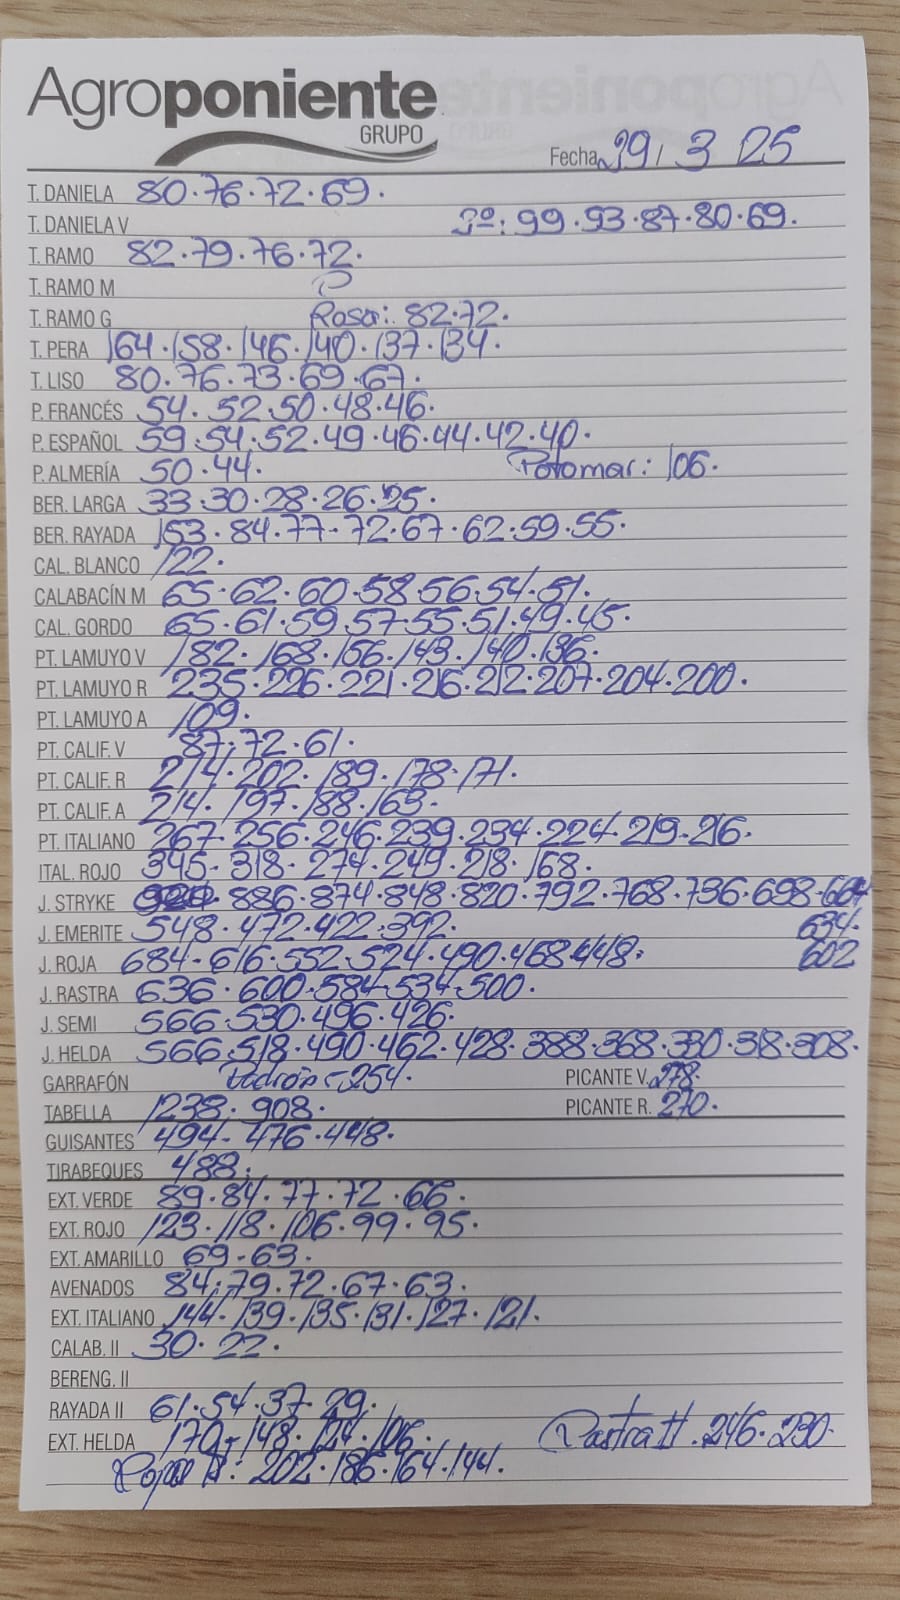 Agroponiente
GRUPO
Fecha 29/ 3 25
T. DANIELA 80.76.72.69.
T. DANELA V 99.93.87.80.69.
T. RAMO 82.79.76.72.
T. RAMO M
T. RAMO G Rosa: 82.72.
T. PERA 164.158.146.140.137.134.
T. LISO 80.76.73.69.67.
P. FRANCÉS 54.52.50.48.46.
P. ESPAÑOL 59.54.52.49.46.44.42.40.
P. ALMERÍA 50.44. Potomar: 106.
BER. LARGA 33.30.28.26.25.
BER. RAYADA 153.84.77.72.67.62.59.55.
CAL. BLANCO 122.
CALABACÍN M 65.62.60.58.56.54.51.
CAL. GORDO 65.61.59.57.55.51.49.45.
PT. LAMUYO V 182.168.156.143.140.136.
PT. LAMUYO R 235.226.221.216.212.207.204.200.
PT. LAMUYO A 109.
PT. CALIF. V 87.72.61.
PT. CALIF. R 214.202.189.178.171.
PT. CALIF. A 214.197.188.163.
PT. ITALIANO 267.256.246.239.234.224.219.216.
ITAL. ROJO 345.318.274.249.218.168.
J. STRYKE 886.874.848.820.792.768.736.698.664
J. EMERITE 548.472.422.392. 634.
J. ROJA 684.616.552.524.490.468.448. 602
J. RASTRA 636.600.584.534.500.
J. SEMI 566.530.496.426.
J. HELDA 566.518.490.462.428.388.368.330.318.308.
GARRAFÓN Padrón-254. PICANTE V. 278.
TABELLA 1238.908. PICANTE R. 270.
GUISANTES 494-476.448.
TIRABEQUES 488.
EXT. VERDE 89.84.77.72.66.
EXT. ROJO 123.118.106.99.95.
EXT. AMARILLO 69-63.
AVENADOS 84.79.72.67.63.
EXT. ITALIANO 144.139.135.131.127.121.
CALAB. II 30.22.
BERENG. II
RAYADA II 61.54.37.29.
EXT. HELDA 170-148.124.106. Rastra II.246.230.
Roja II: 202.186.164.144.